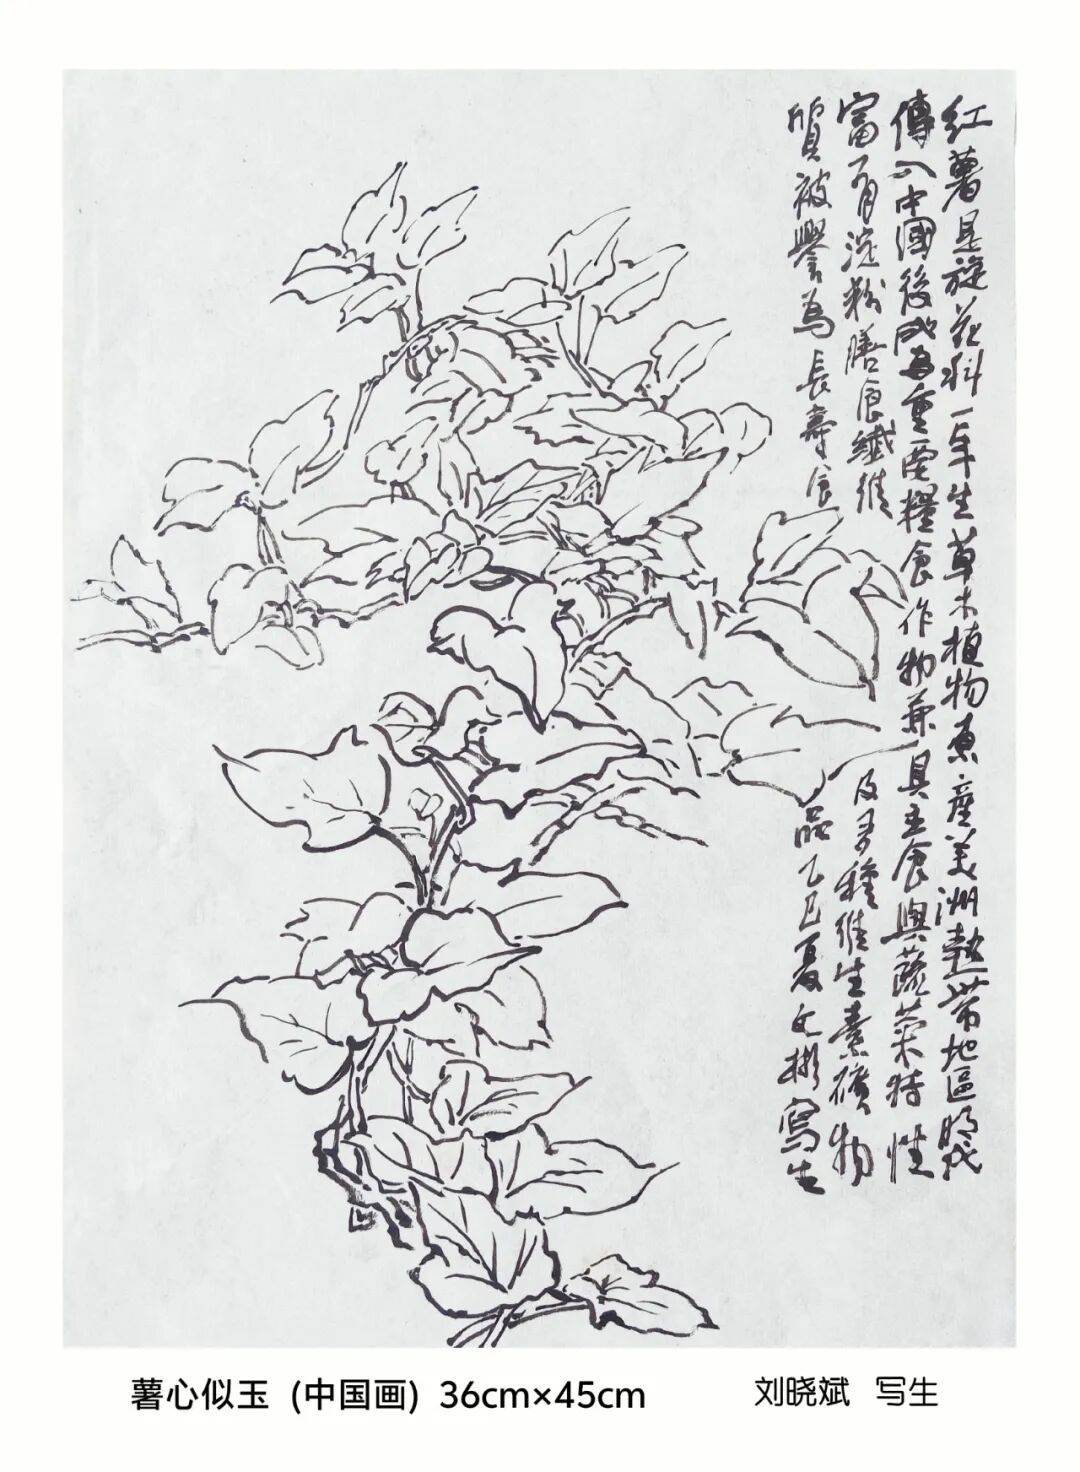 红薯是旋花科一年生草本植物原產美洲熱帶地區明代
傳入中國後成為重要糧食作物兼具主食與蔬菜特性
富有淀粉膳食纖維及多種維生素礦物
質被譽為長壽食品乙巳夏文彬寫生
薯心似玉 (中国画) 36cm×45cm
刘晓斌 写生